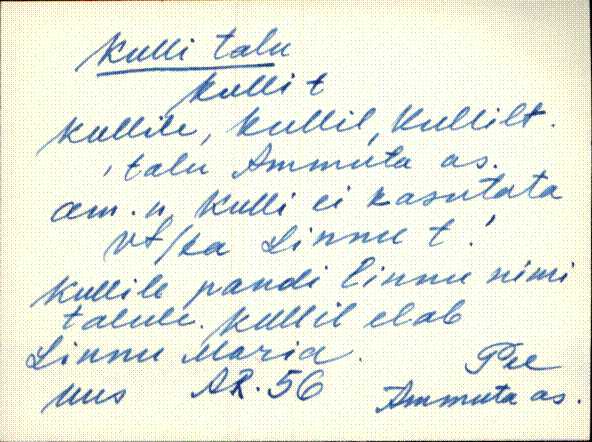 Kulli talu
Kulli t
Kullile, Kullil, Kullilt.
, talu Ammuta as.
am. n. Kulli ei kasutata
vt/ka Linnu t.!
Kullile pandi Linnu nimi
talule. Kullil elab
Linnu Maria.
Mus AR. 56 Pee
Ammuta as.